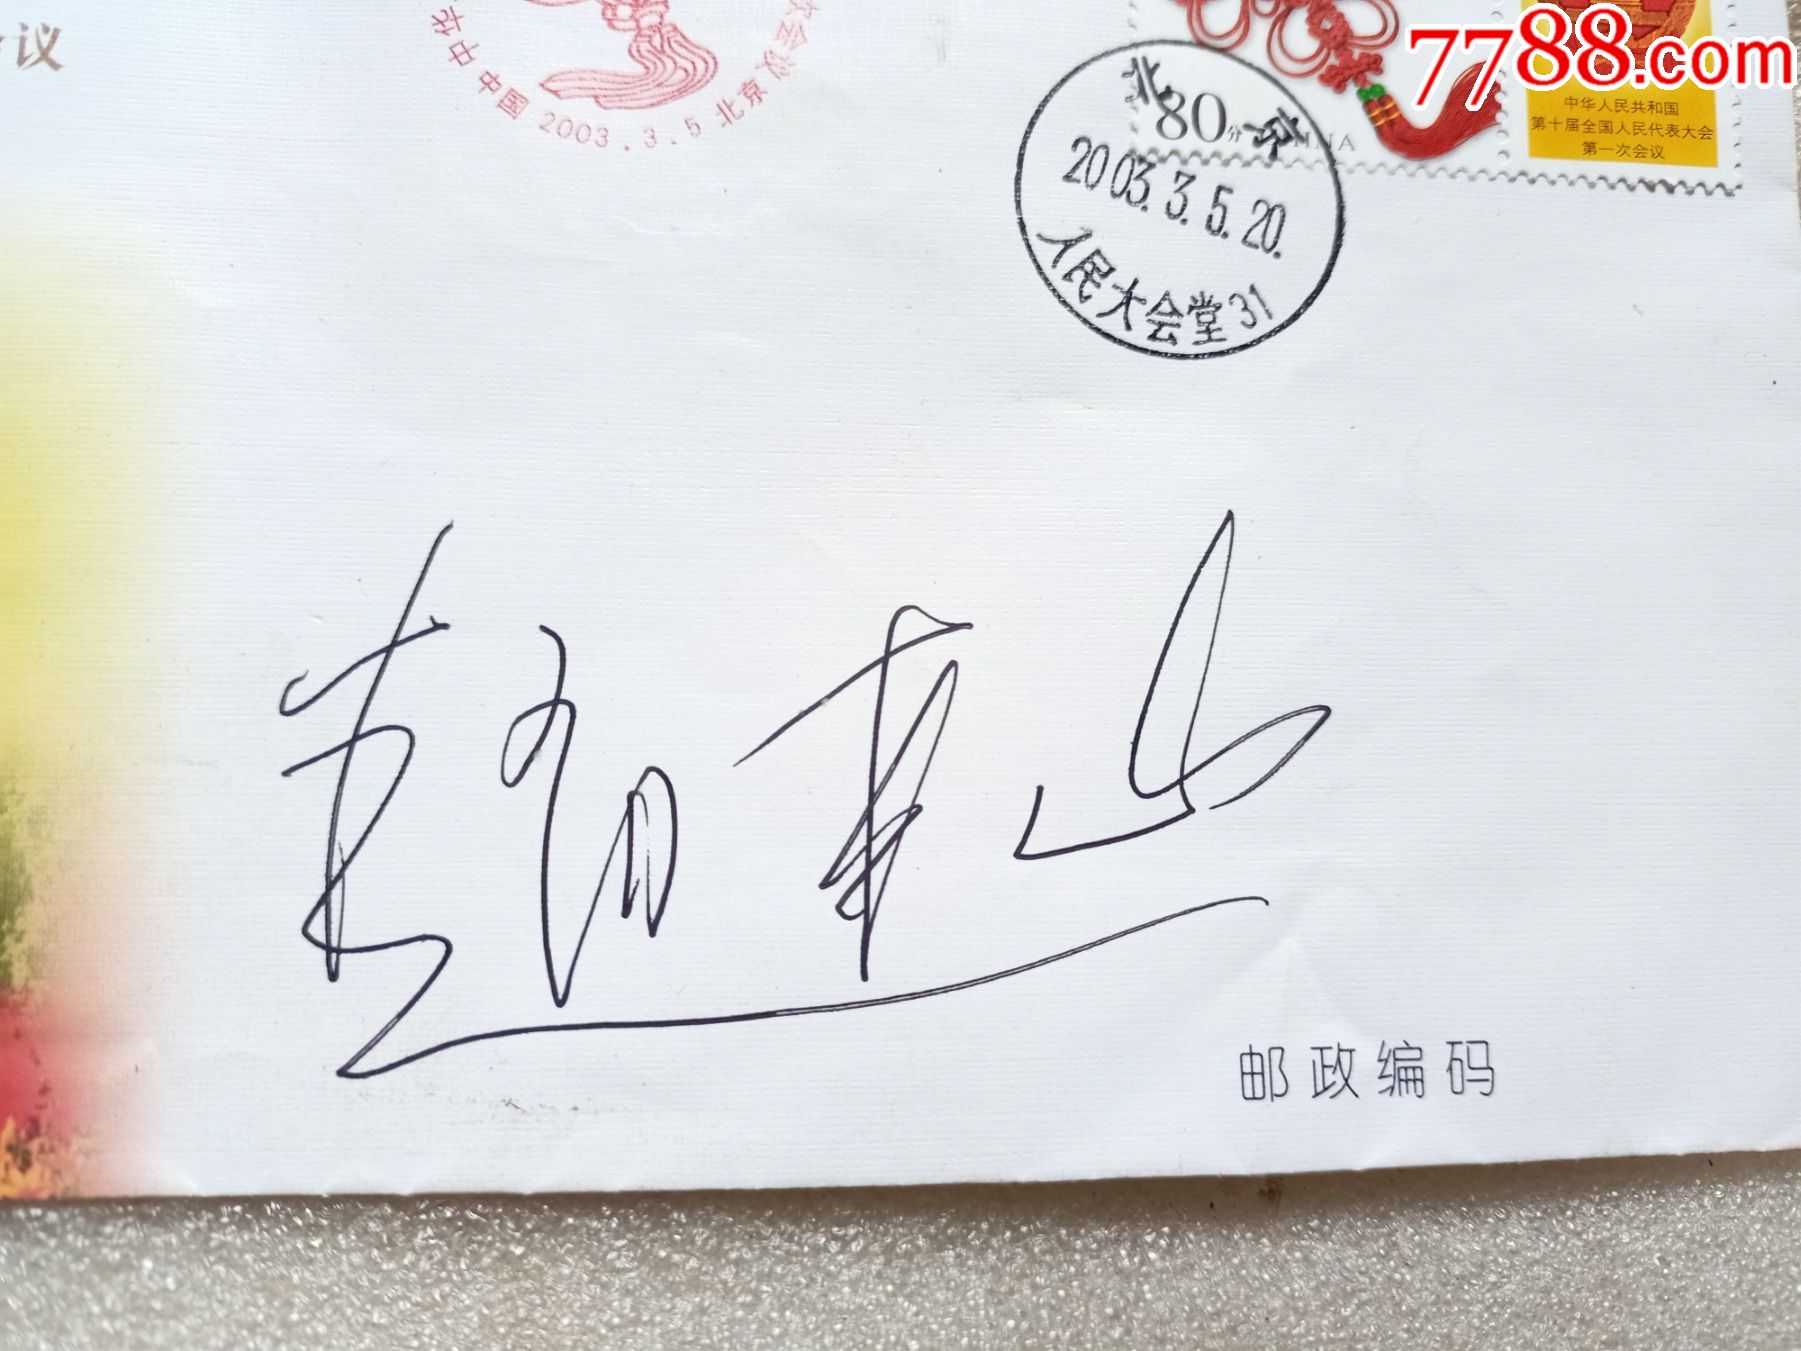 议
中华
次会议
中国 2003.3.5 北京
7788.com
80分
CHINA
中华人民共和国
第十届全国人民代表大会
第一次会议
北京
2003.3.5.20.
人民大会堂31
邮政编码